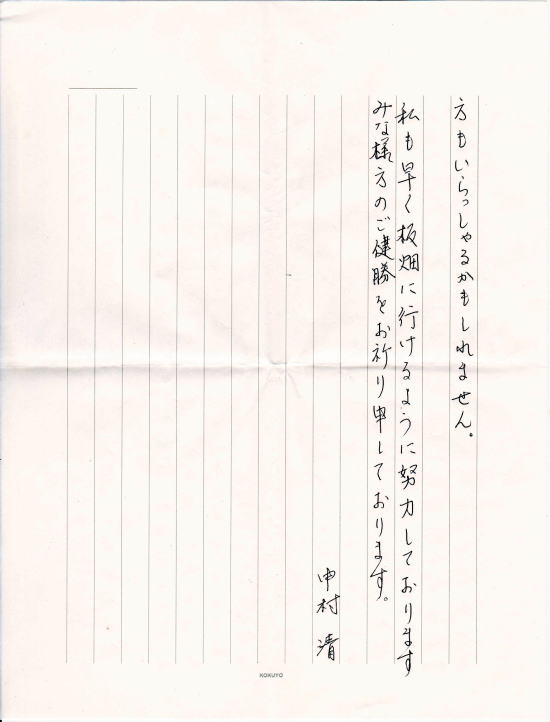 方もいらっしゃるかもしれません。
私も早く板畑に行けるように努力しております
みな様方のご健勝をお祈り申しております。
中村 清
KOKUYO